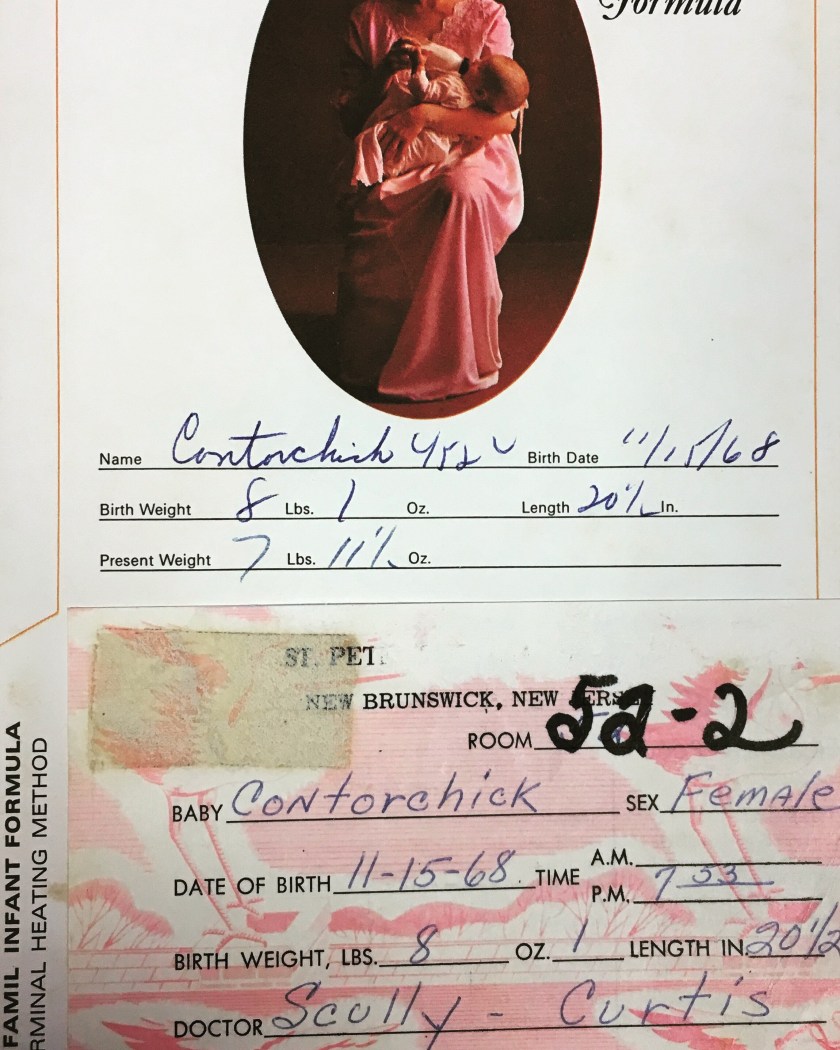 Formula
Name Contorchick 452 Birth Date 11/15/68
Birth Weight 8 Lbs. 1 Oz. Length 20½ In.
Present Weight 7 Lbs. 11½ Oz.
ST. PET
NEW BRUNSWICK, NEW JERSEY
ROOM 52-2
BABY Contorchick SEX Female
DATE OF BIRTH 11-15-68 TIME A.M.
P.M. 7 53
BIRTH WEIGHT, LBS. 8 OZ. 1 LENGTH IN. 20 1/2
DOCTOR Scully - Curtis
FAMIL INFANT FORMULA
RMINAL HEATING METHOD